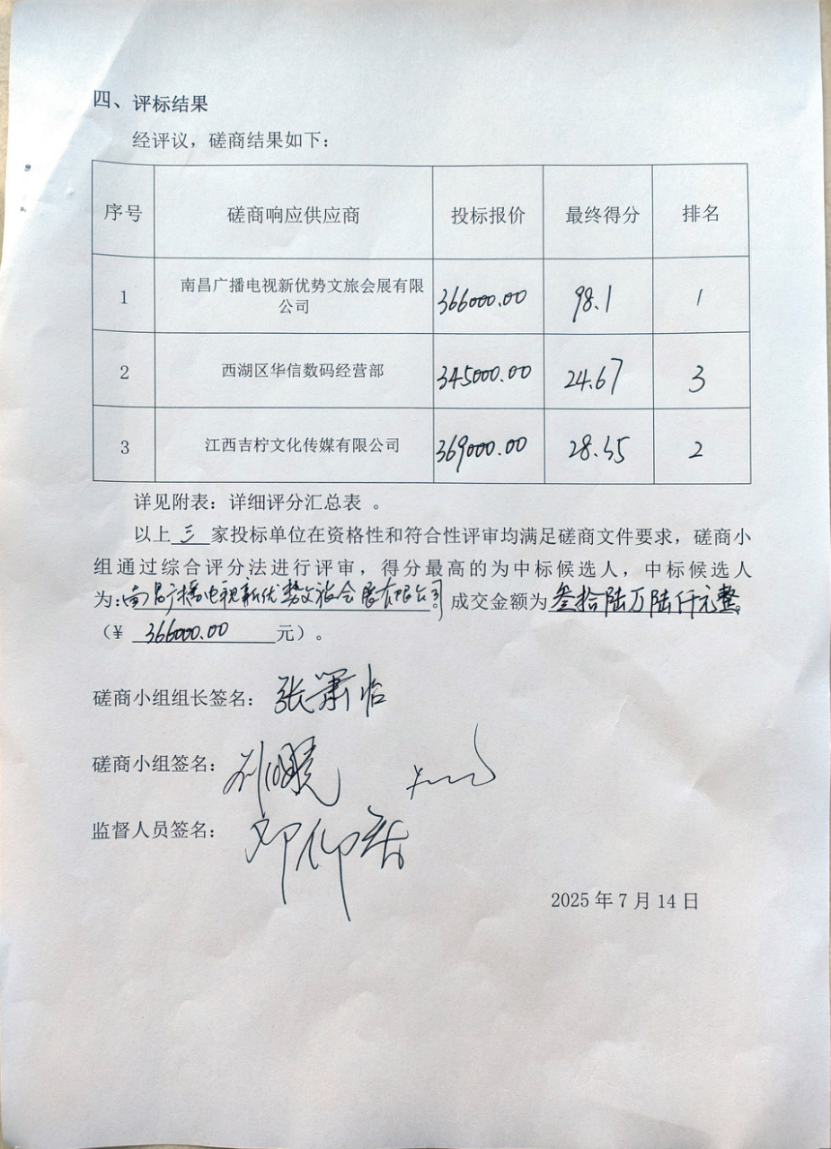 四、评标结果
经评议，磋商结果如下：
序号 磋商响应供应商 投标报价 最终得分 排名
1 南昌广播电视新优势文旅会展有限公司 366000.00 98.1 1
2 西湖区华信数码经营部 345000.00 24.67 3
3 江西吉柠文化传媒有限公司 369000.00 28.35 2
详见附表：详细评分汇总表 。
以上 三 家投标单位在资格性和符合性评审均满足磋商文件要求，磋商小
组通过综合评分法进行评审，得分最高的为中标候选人，中标候选人
为：南昌广播电视新优势文旅会展有限公司 成交金额为 叁拾陆万陆仟元整
（¥ 366000.00 元）。
磋商小组组长签名：张箫怡
磋商小组签名：
监督人员签名：
2025 年 7 月 14 日